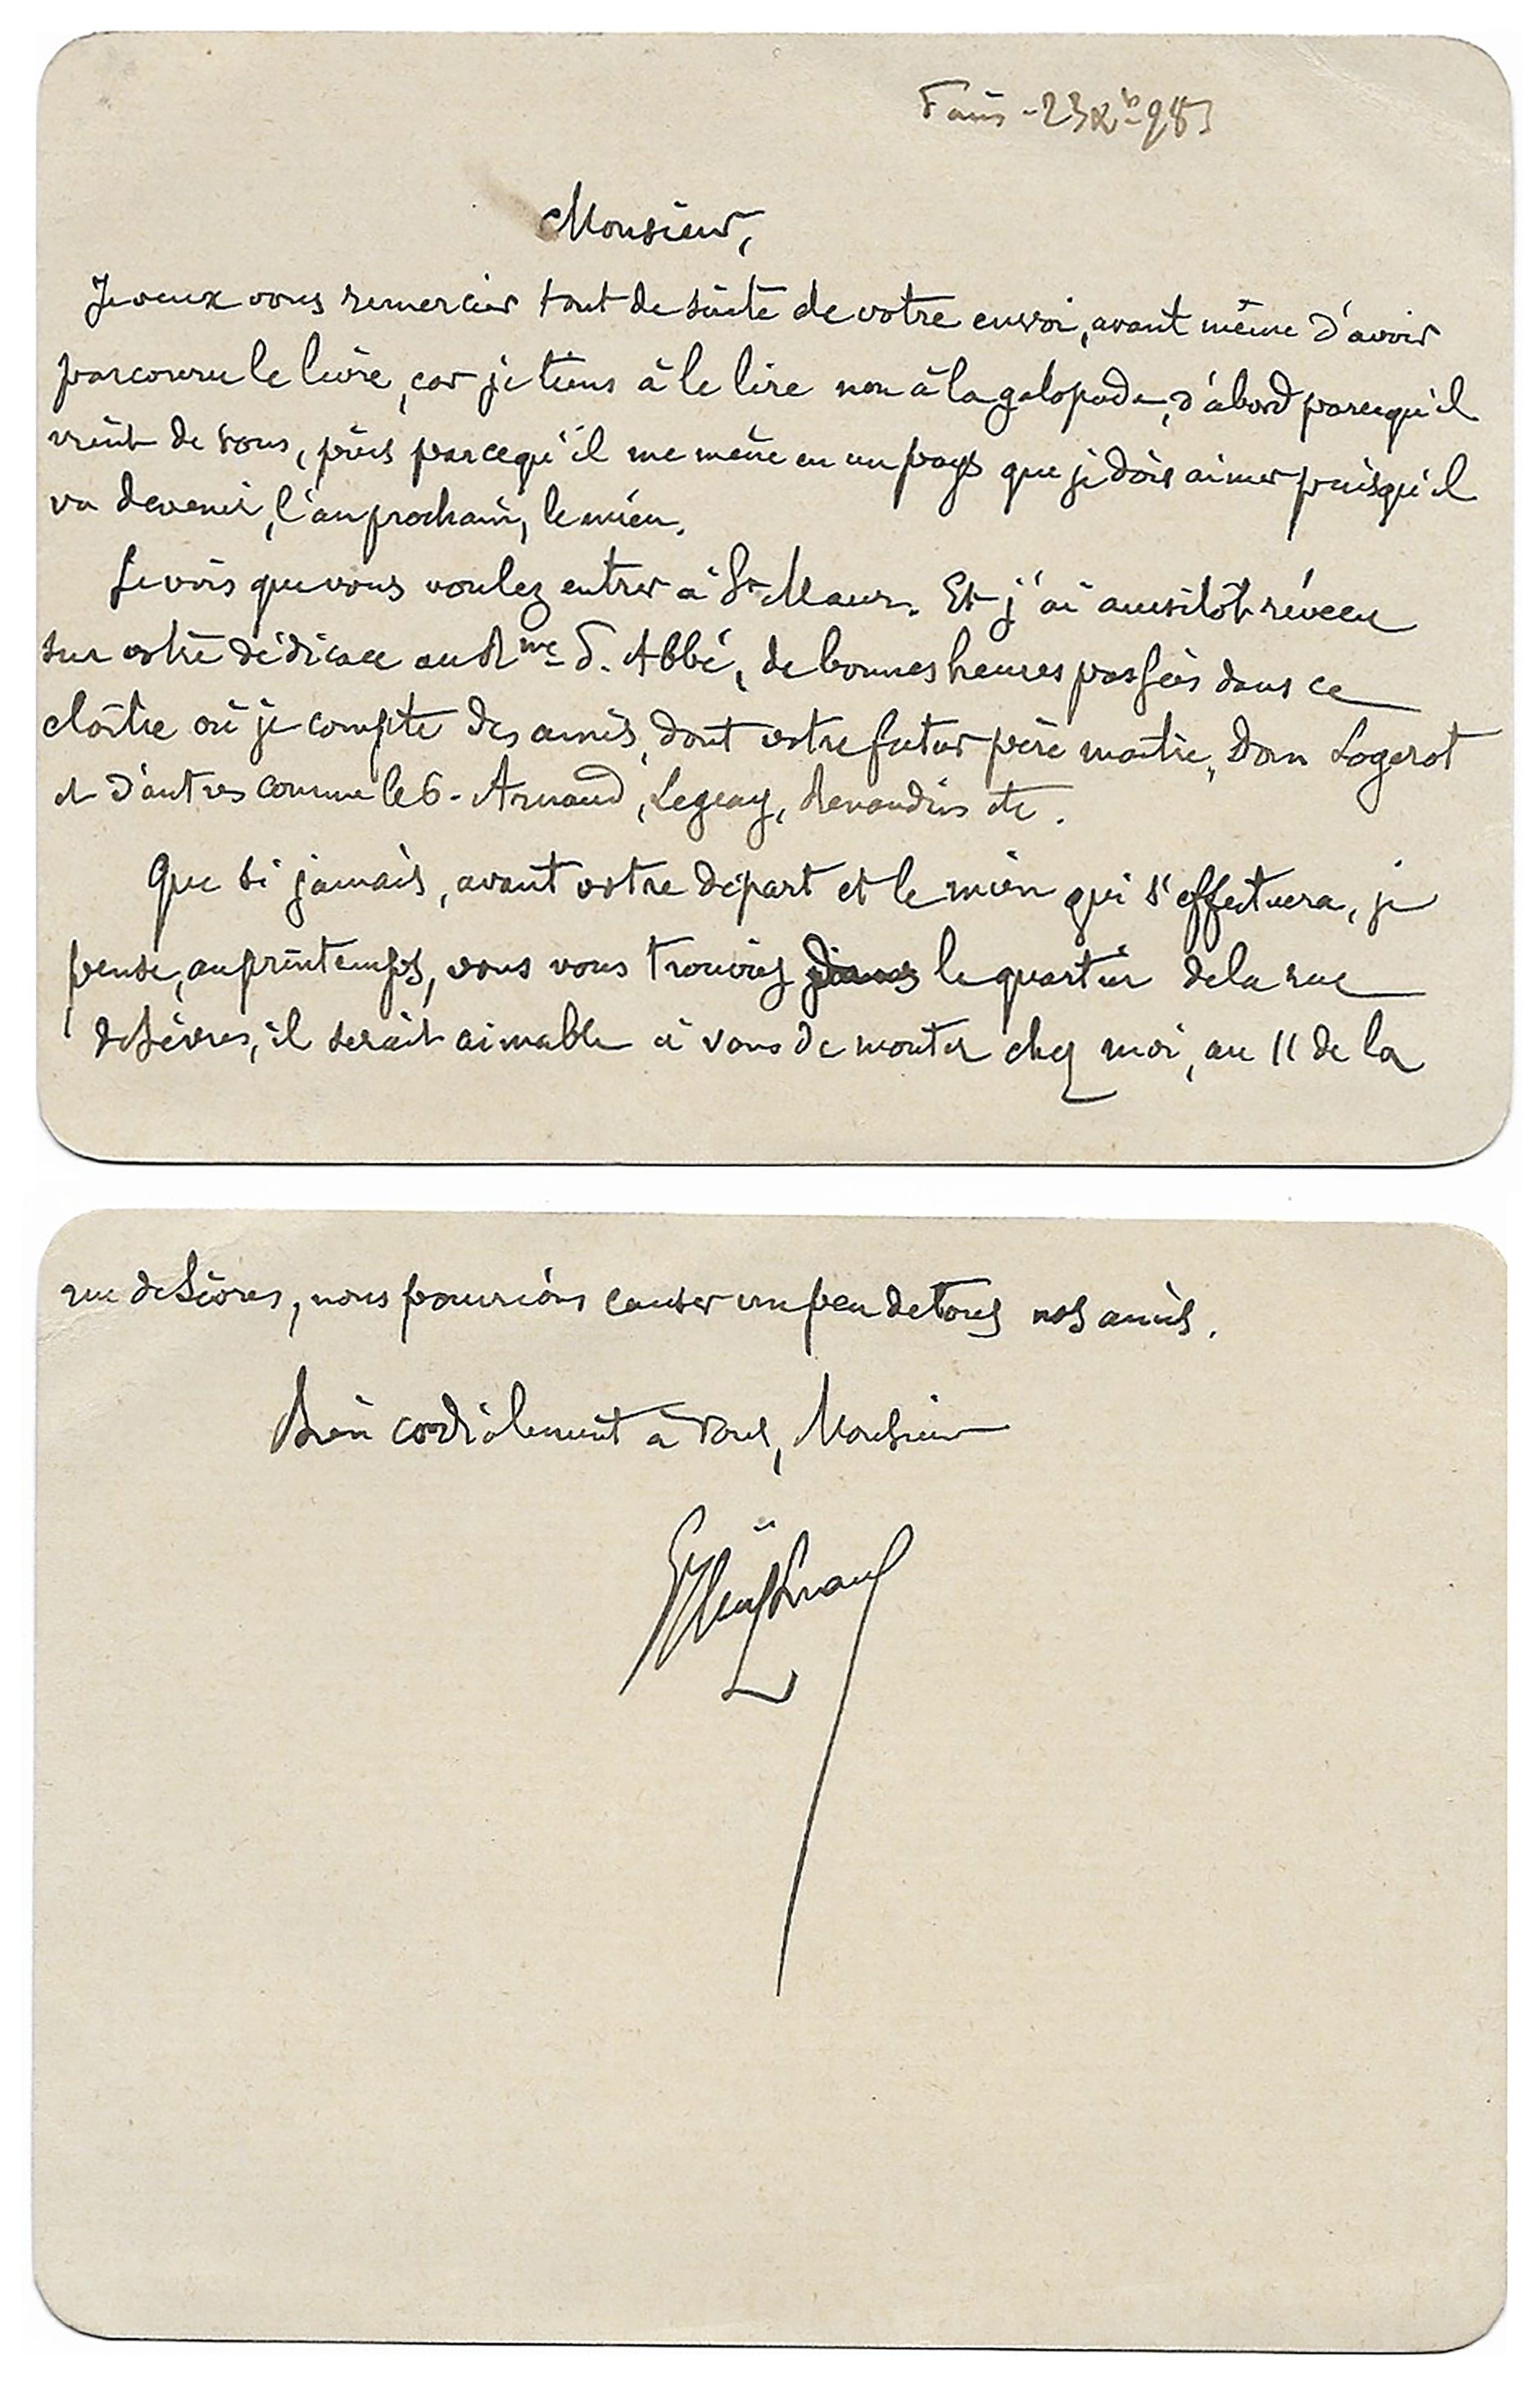 Paris - 23 Xb 98
Monsieur,
Je veux vous remercier tout de suite de votre envoi, avant même d'avoir
parcouru le livre, car je tiens à le lire non à la galopade, d'abord parcequ'il
vient de vous, puis parcequ'il me mène en un pays que je dois aimer puisqu'il
va devenir, l'an prochain, le mien.
Je vois que vous voulez entrer à St Maur. Et j'ai aussitôt révécu
sur votre dédicace au Rme P. Abbé, de bonnes heures passées dans ce
cloître où je compte des amis, dont votre futur père maître, Dom Logerot
et d'autres comme les Arnaud, Legeay, Renaudin etc.
Que si jamais, avant votre départ et le mien qui s'effectuera, je
pense, au printemps, vous vous trouviez dans le quartier de la rue
de Sèvres, il serait aimable à vous de monter chez moi, au 11 de la
rue de Sèvres, nous pourrions causer un peu de tous nos amis.
Bien cordialement à vous, Monsieur